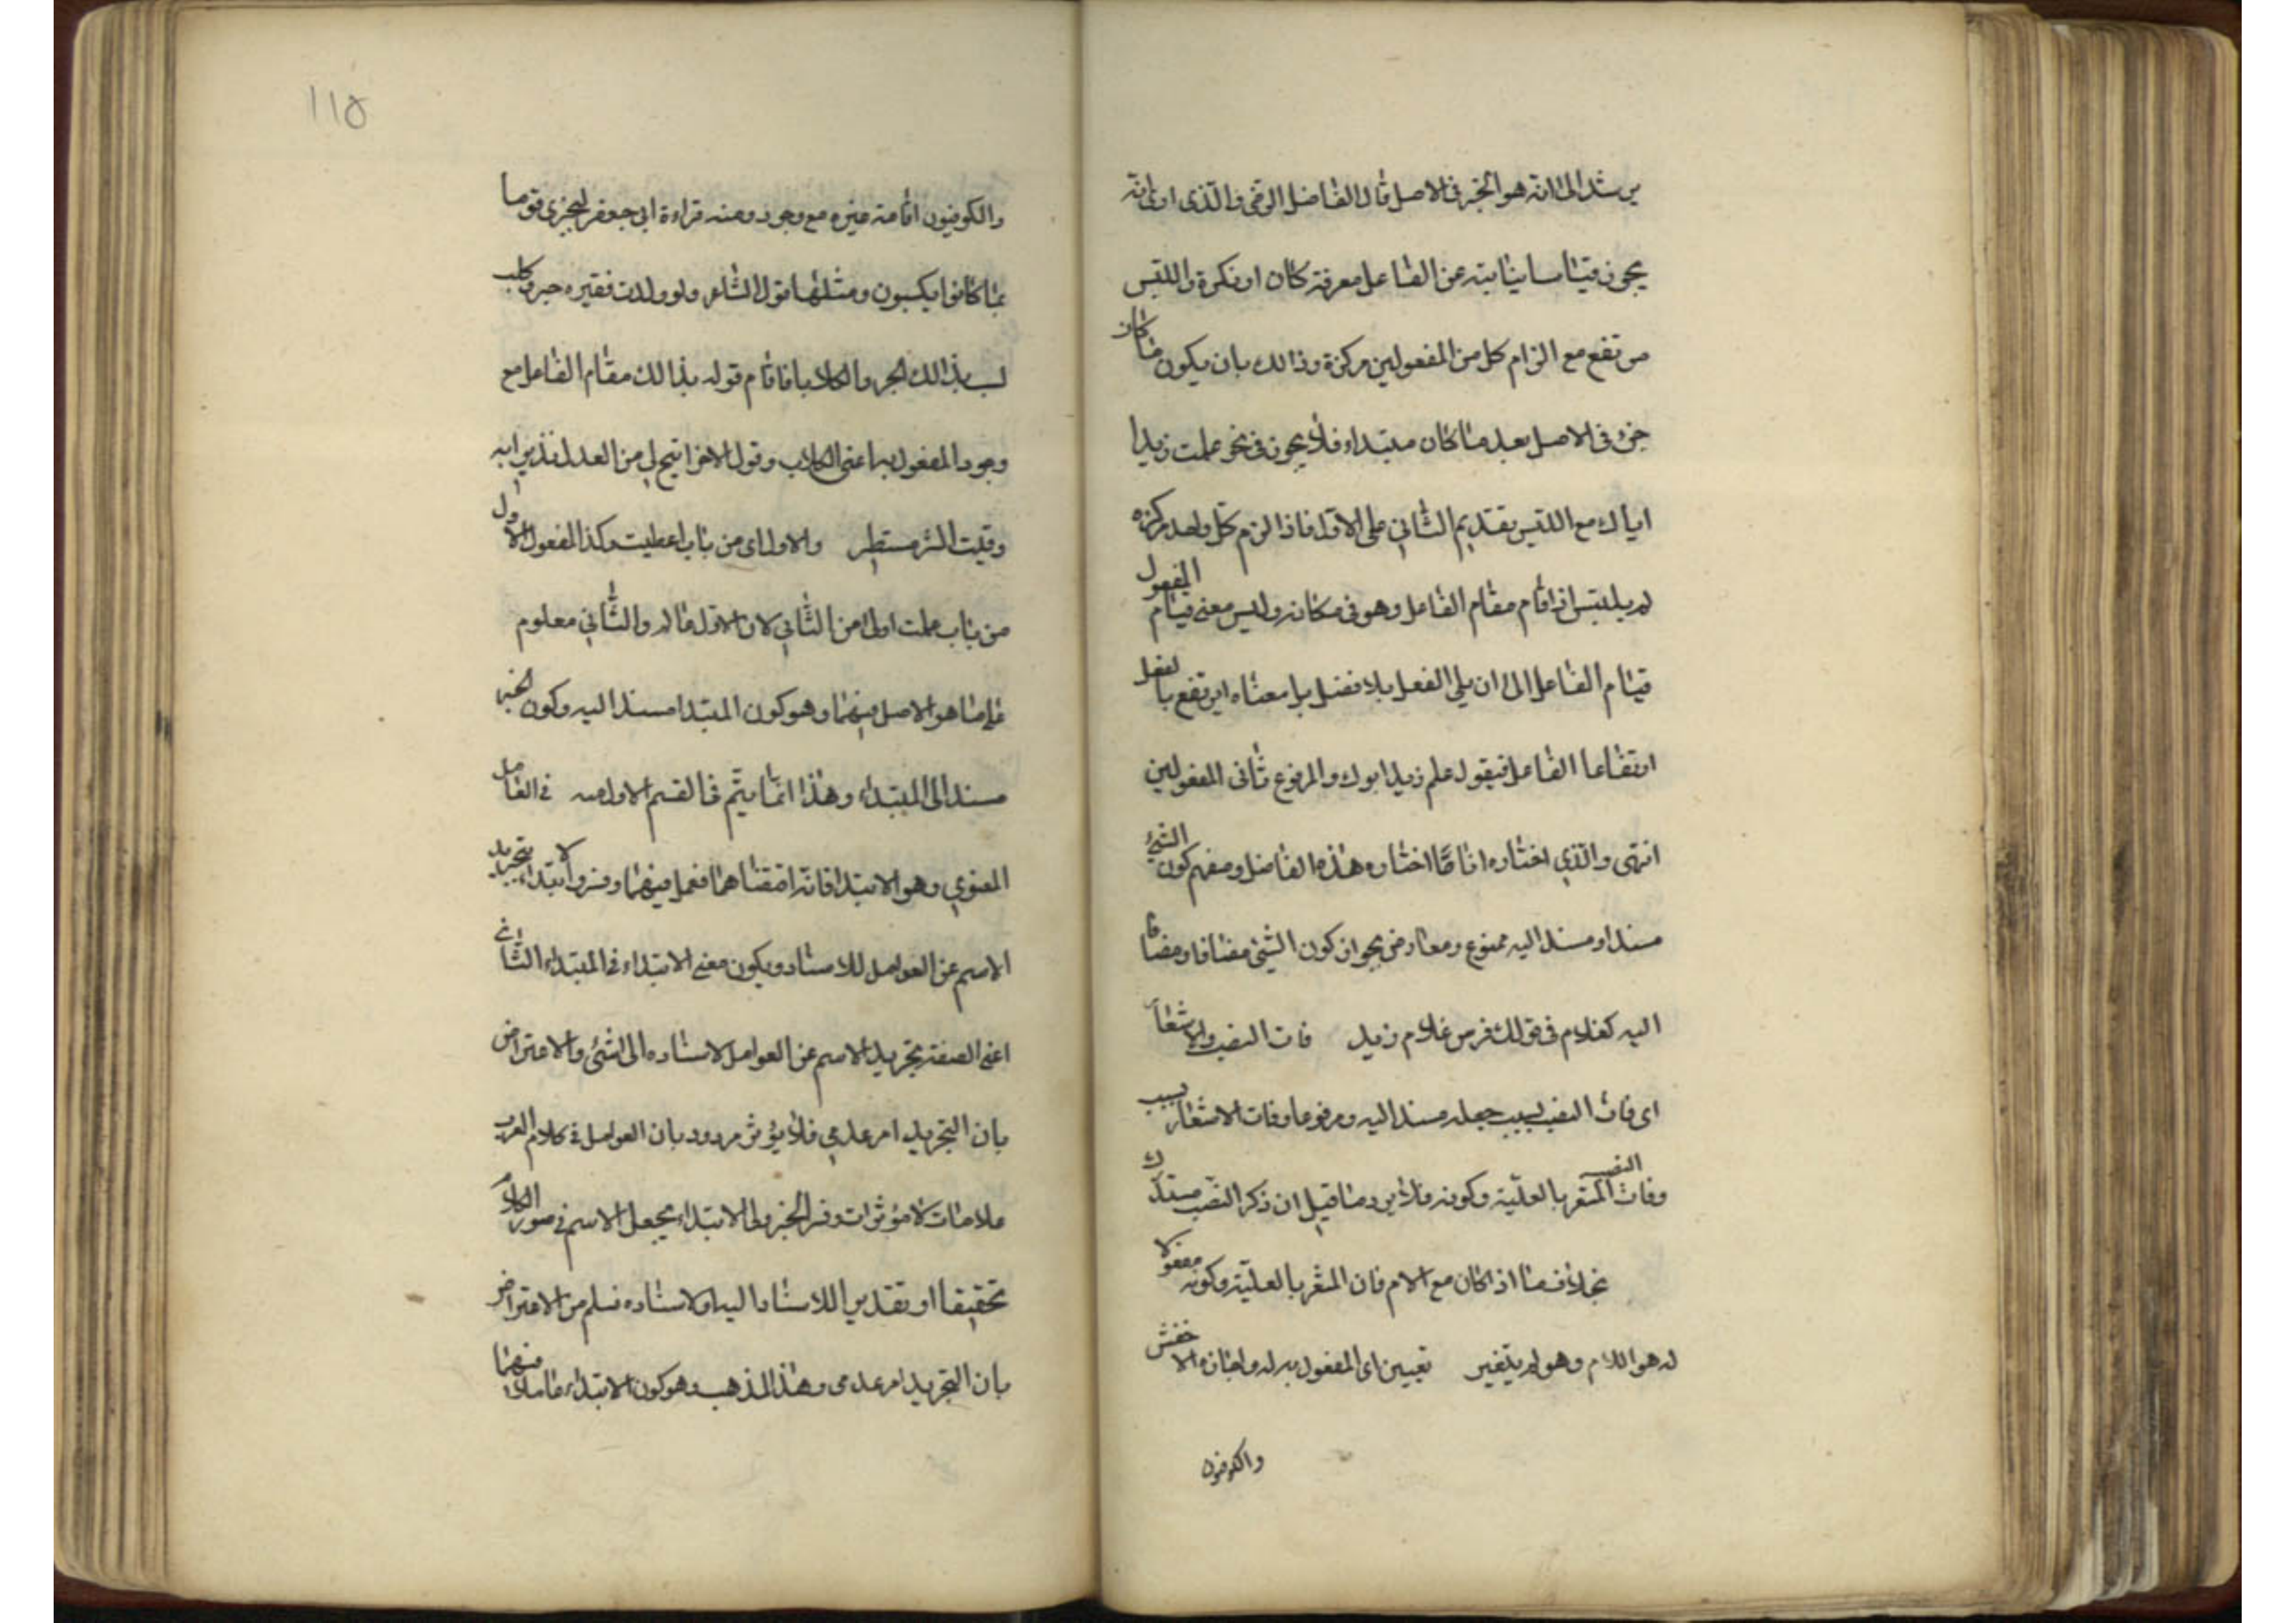 يرشد الى انه هو الخبر فى الاصل قال الفاضل الرضى والذى ارى انه
يجوز قياسا نيابته عن الفاعل معرفة كان او نكرة واللبس
مرتفع مع الزام كل من المفعولين مركزه وذالك بان يكون ما كان
خبرا فى الاصل بعد ما كان مبتداء فلا يجوز فى نحو علمت زيدا
اياك مع اللبس تقديم الثاني على الاول فاذا لزم كل واحد مركزه
لم يلتبس اذا قام مقام الفاعل وهو فى مكانه وليس معنى قيام المفعول
قيام الفاعل الى ان يلى الفعل بلا فصل بل معناه ان يرتفع بالفعل
ارتفاعا الفاعل فيقول علم زيدا ابوك والمرفوع ثانى المفعولين
انتهى والذي اختاره انا ما اختاره هذه الفاضل ومنعهم كون الشئ
مسندا ومسند اليه ممنوع ومعارض بجواز كون الشئ مضافا ومضافا
اليه كغلام فى قولك فرس غلام زيد فات النصب والاشعار
اى فات النصب بسبب جعله مسند اليه ومرفوعا وفات الاشعار بسبب
وفات النصب المشعر بالعلّية وكونه فلا يرد ما قيل ان ذكر النصب مستدرك
بخلاف ما اذا كان مع الام فان المشعر بالعلّية وكونه مفعولا
له هو اللام وهو لم يتغير تعيين اى المفعول به له واجازه الاخفش
والكوفيون
١١٥
والكوفيون اقامة غيره مع وجوده ومنه قراءة ابى جعفر ليجزى قوما
بما كانوا يكسبون ومثلها قول الشاعر ولو ولدت فقيره جرو كلب
لسب بذالك الجرو الكلابا فاقام قوله بذالك مقام الفاعل مع
وجود المفعول به اعنى الكلاب وقول الاخر اتيح لي من العدا نذيرا به
وقيت الشر مستطر والاول اى من باب اعطيت وكذا المفعول الاول
من باب علمت اولى من الثاني لان الاول عالم والثاني معلوم
على ما هو الاصل فيهما وهو كون المبتدا مسندا اليه وكون الخبر
مسندا الى المبتداء وهذا انما يتم فى القسم الاول منه فى العامل
المعنوي وهو الابتدا فانه اقتضاهما فعمل فيهما وفسروا الابتداء بتجريد
الاسم عن العوامل للاسناد ويكون معنى الابتداء فى المبتداء الثانى
اعنى الصفة تجريد الاسم عن العوامل لاسناده الى شئ والاعتراض
بان التجريد امر عدمي فلا يؤثر مردود بان العوامل فى كلام العرب
علامات لا مؤثرات وفسر الجزولى الابتداء بجعل الاسم فى صدر الكلام
تحقيقا او تقديرا للاسناد اليه او لاسناده فسلم من الاعتراض
بان التجريد امر عدمى وهذا المذهب وهو كون الابتداء عاملا فيهما